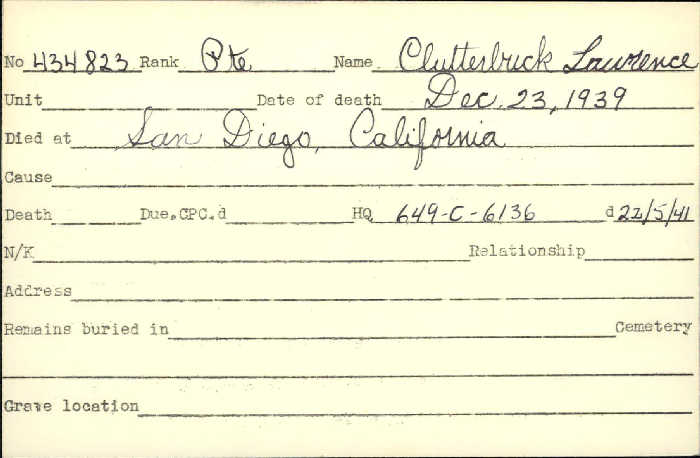 No 434823 Rank Pte Name Clutterbuck Lawrence
Unit Date of death Dec. 23, 1939
Died at San Diego, California
Cause
Death Due.CPC.d HQ 649-C-6136 d 22/5/41
N/K Relationship
Address
Remains buried in Cemetery
Grave location